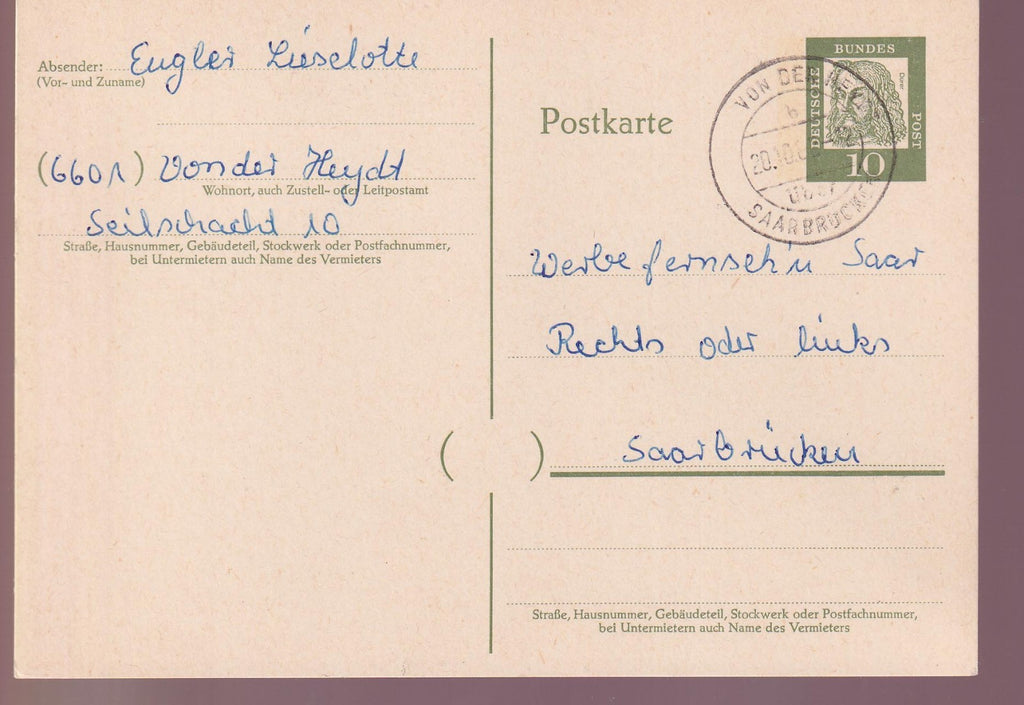 Absender: Engler Lieselotte
(Vor- und Zuname)
(6601) Von der Heydt
Wohnort, auch Zustell- oder Leitpostamt
Seilschacht 10
Straße, Hausnummer, Gebäudeteil, Stockwerk oder Postfachnummer,
bei Untermietern auch Name des Vermieters
Postkarte
DEUTSCHE
BUNDES
POST
Dürer
10
VON DER HEYDT
b
20.10.
über
SAARBRÜCKEN
Werbefernseh'n Saar
Rechts oder links
( ) Saarbrücken
Straße, Hausnummer, Gebäudeteil, Stockwerk oder Postfachnummer,
bei Untermietern auch Name des Vermieters